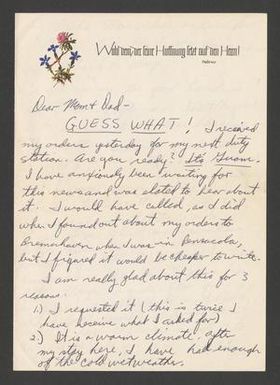 Wohl dem, der seine Hoffnung setzt auf den Herrn!
Dear Mom & Dad -
GUESS WHAT! I received
my orders yesterday for my next duty
station. Are you ready? Its Guam.
I have anxiously been waiting for
this news and was elated to hear about
it. I would have called, as I did
when I found out about my orders to
Bremerhaven when I was in Pensacola,
but I figured it would be cheaper to write.
I am really glad about this for 3
reasons:
1.) I requested it (this is twice I
have receive what I asked for)
2.) It is a warm climate. after
my stay here, I have had enough
of the cold wet weather.